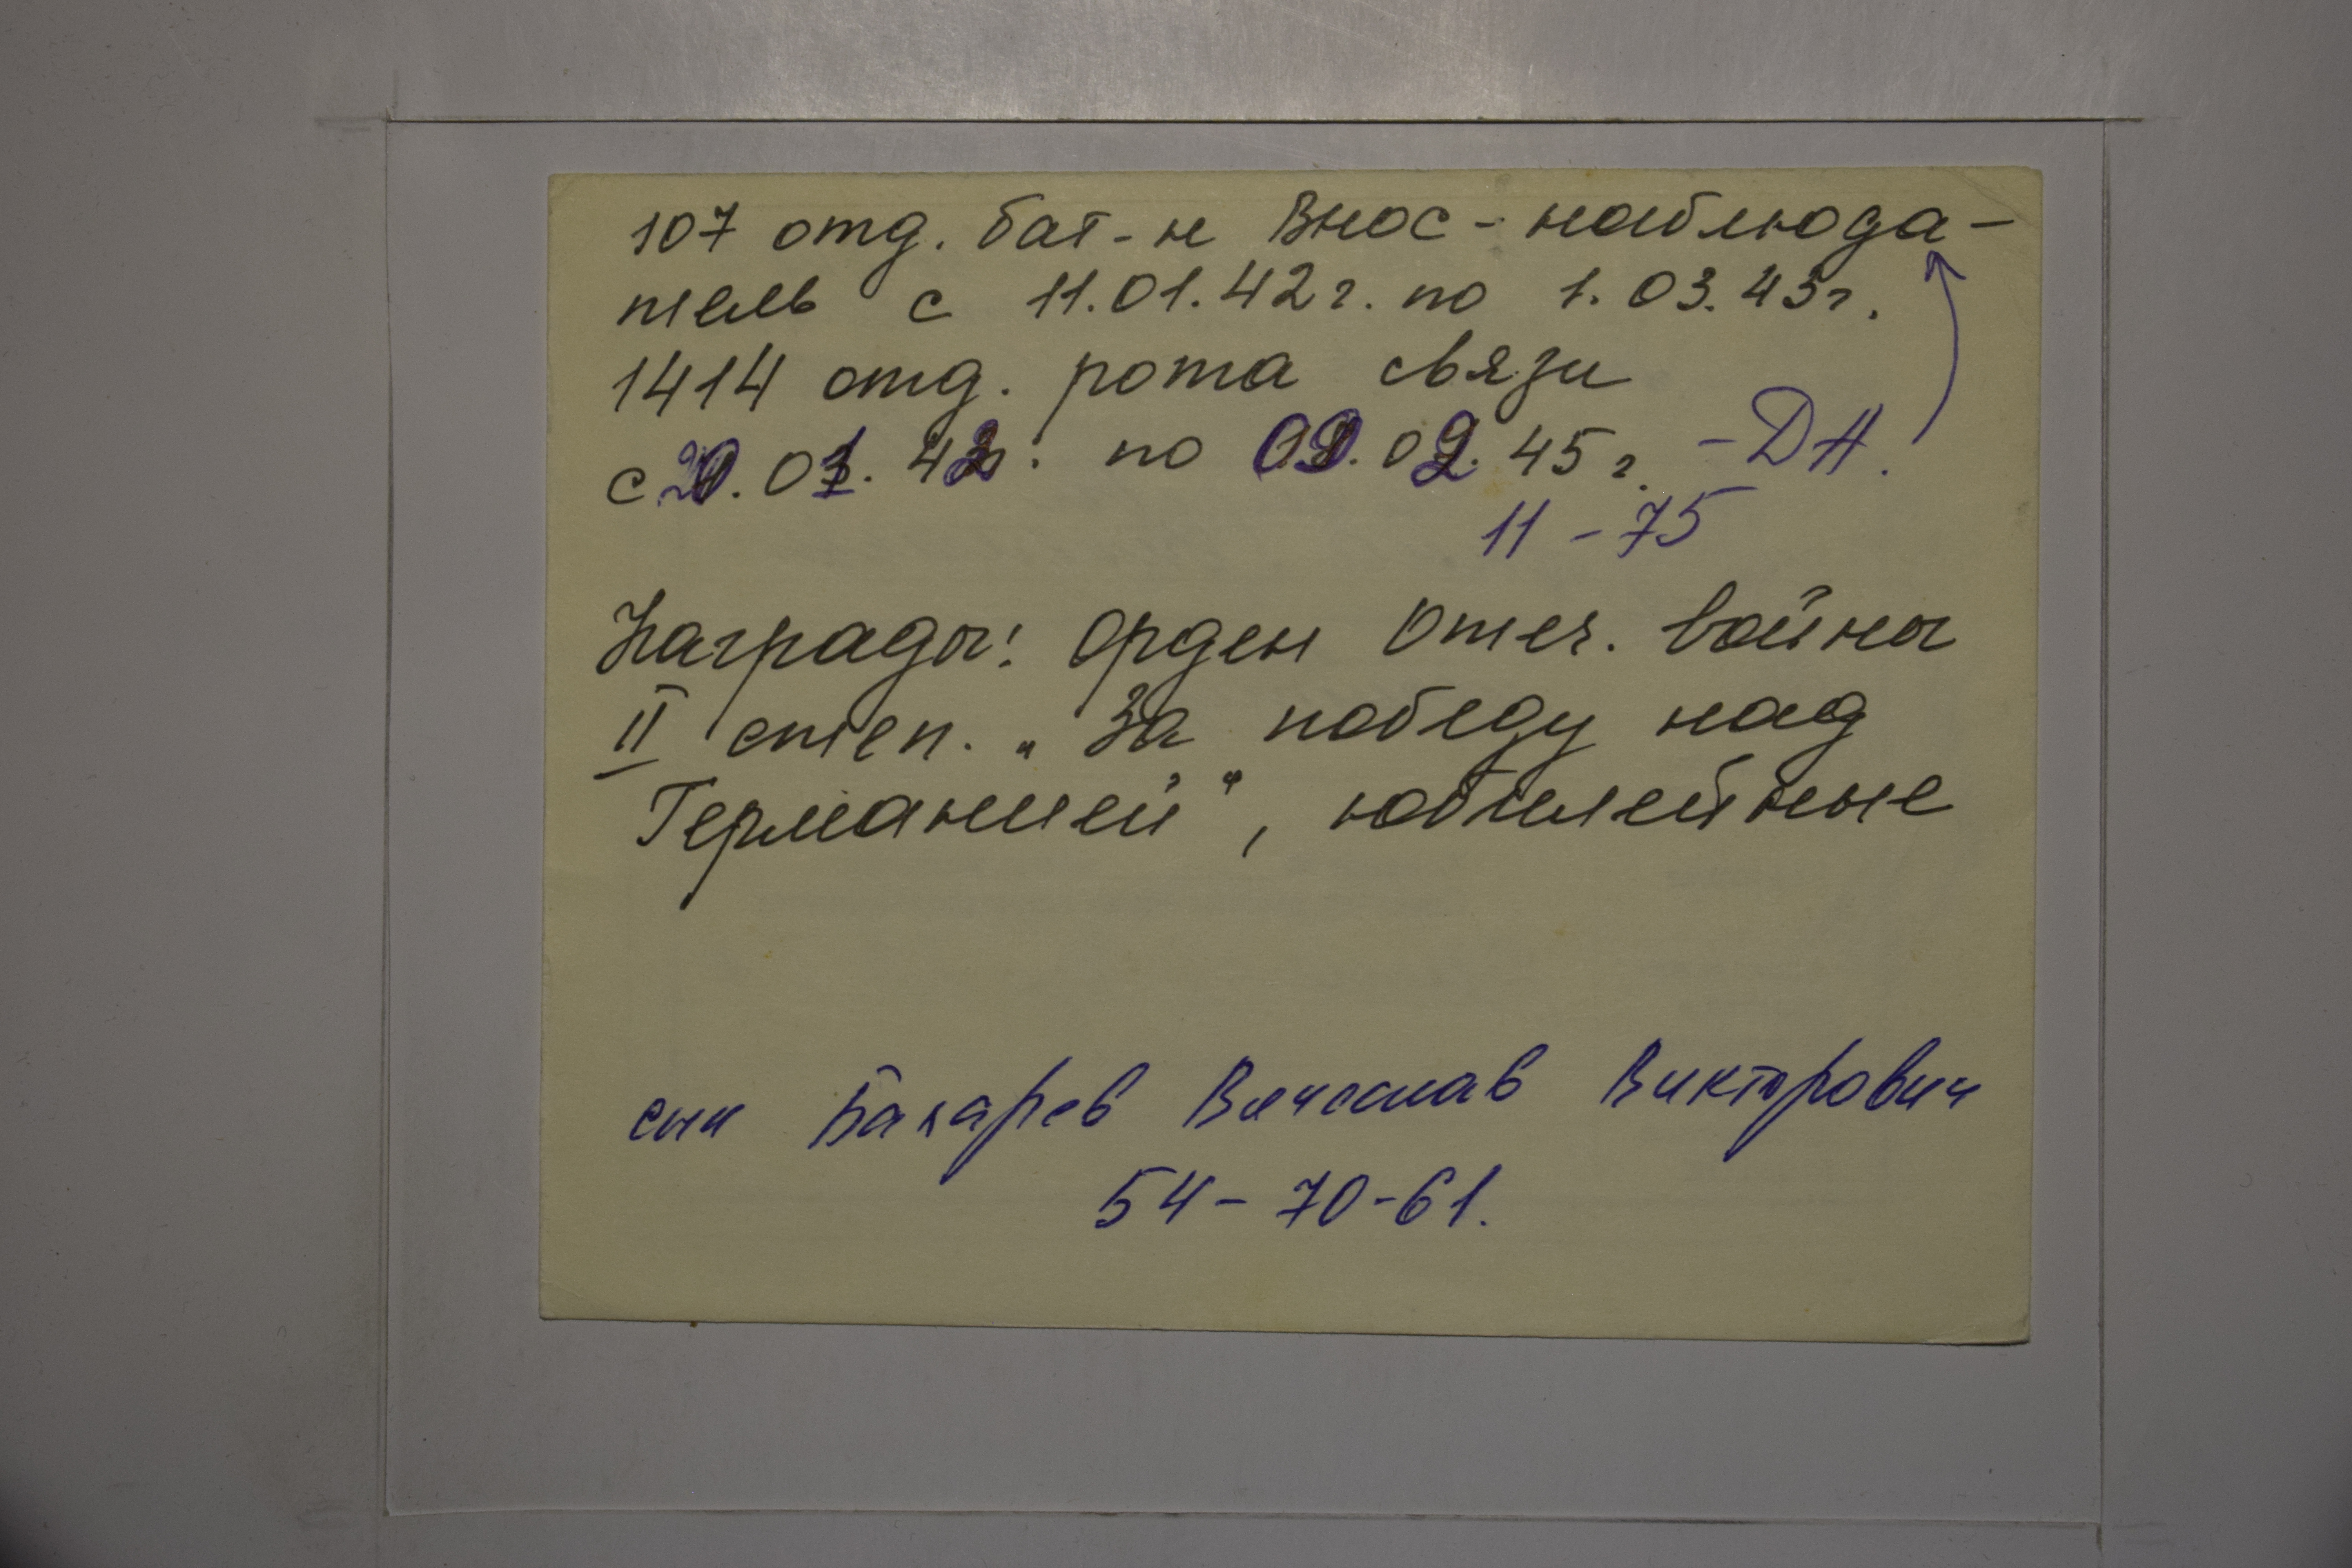 107 отд. бат-н Внос - наблюда-
тель с 11.01.42г. по 1.03.43г.
1414 отд. рота связи
с 20.01.42г. по 09.02.45г. - ДА.
11-75
Награды: Орден Отеч. войны
II степ. „За победу над
Германией", юбилейные
сын Вячеслав Викторович
54-70-61.